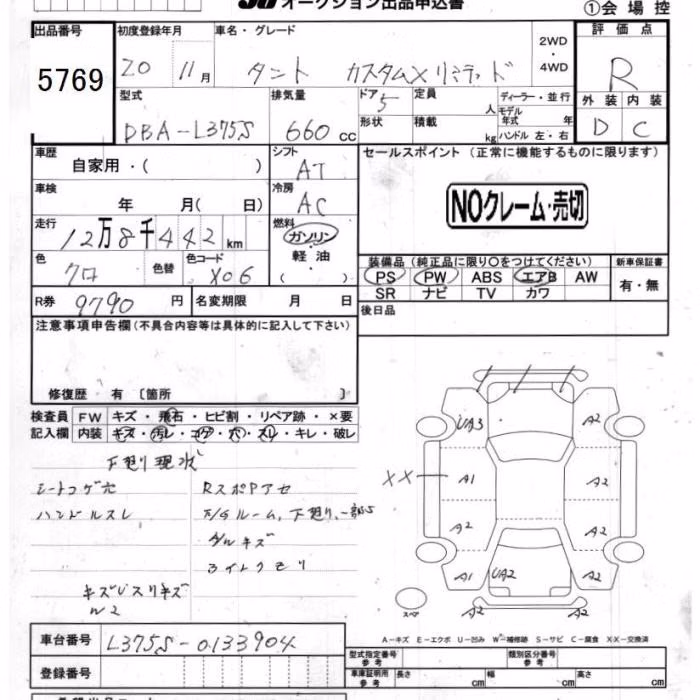 オークション出品申込書
①会場控
出品番号 5769
初度登録年月 20 11月
車名・グレード タント カスタムXリミテッド
2WD・4WD
評価点 R
外装 内装
D C
型式 DBA-L375S
排気量 660cc
ドア 5
定員 人
ディーラー・並行
モデル年式 年式
形状
積載 kg
ハンドル 左・右
車歴 自家用・( )
シフト AT
セールスポイント (正常に機能するものに限ります)
車検 年 月( 日)
冷房 AC
NOクレーム・売切
走行 12万8千442km
燃料 ガソリン・軽油・( )
色 クロ 色替 色コード X06
装備品 (純正品に限り〇をつけてください)
新車保証書
PS PW ABS エアB AW
有・無
SR ナビ TV カワ
R券 9790円
名変期限 月 日
後日品
注意事項申告欄(不具合内容等は具体的に記入して下さい)
修復歴 有〔箇所 〕
検査員記入欄
FW キズ・飛石・ヒビ割・リペア跡・×要
内装 キズ・汚レ・コゲ・穴・スレ・キレ・破レ
下廻リ現状
シートコゲ穴
RスポPアセ
ハンドルスレ
キズ
キズ
W2
UA3 A2
XX A1 A2
A2 A2
A1 UA2 A2
スペア
A2
A-キズ E-エクボ U-凹み W-補修跡 S-サビ C-腐食 X・X-交換済
車台番号 L375S-0133904
登録番号
型式指定番号 参考
類別区分番号 参考
車庫証明用 参考 長さ cm 幅 cm 高さ cm